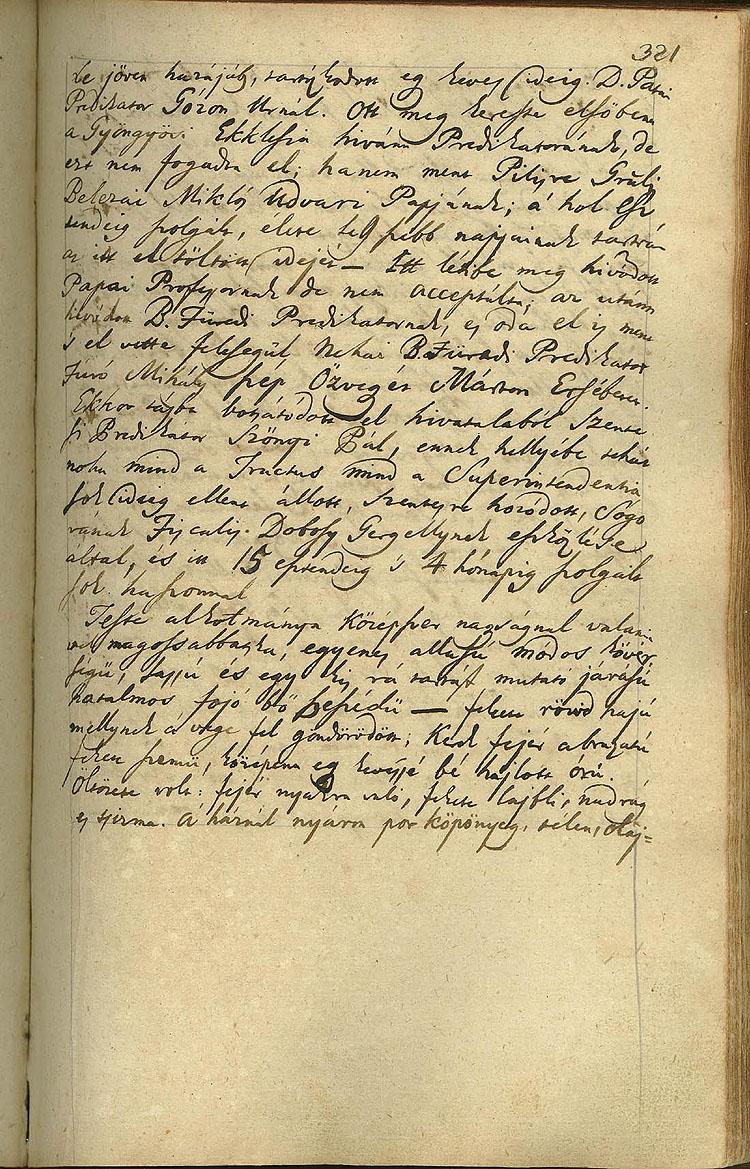 321
le jöven hazájáb, tartózkodott eg keves ideig. D. Patai
Predikator Gózon Urnál. Ott meg kereste elsöben
a Gyöngyösi Ekklesia hivánn Predikatorának, de
ezt nem fogadta el; hanem ment Pilisre Gróf
Beleznai Miklós Udvari Papjának; á hol
tendeig szolgált, élete leg szebb napjainak tartván
az itt el töltött idejét — Itt létébe meg hivódott
Papai Professornak de nem acceptálta; az utánn
hivódott B. Füredi Predikatornak, es oda el is ment
's el vette feleségül Néhai B. Füredi Predikator
Túró Mihály szép Özvegyét Márton Ersébetet.
Ekkor tájba botsátódott el hivatalából Szente
si Predikátor Szőnyi Pál, ennek hellyébe tehát
noha mind a Tractus mind a Superintendentia
sok ideig ellent állott, Szentesre hozódott, Sógo
rának Fiscalis Dobosy Gergellynek eszközlése
által, és itt 15 esztendeig 's 4 hónapig szolgált
sok haszonnal
Teste alkotmánya középszer nagyságnál valami
vel magossabbatska, egyenes állású módos kövér
ségű, hajjú és egy kis rá tartást mutató járású
hatalmos szójó bő beszédü — fekete rövid hajú
mellynek á vége fel göndörödött; Kerek fejér abrazatú
fekete szemü, középenn eg kevéssé bé hajlott órú.
Öltözete volt: fejér nyakra való, fekete lajbli, nadrág
es tsizma. A háznál nyáron por köpönyeg, télen, olaj=